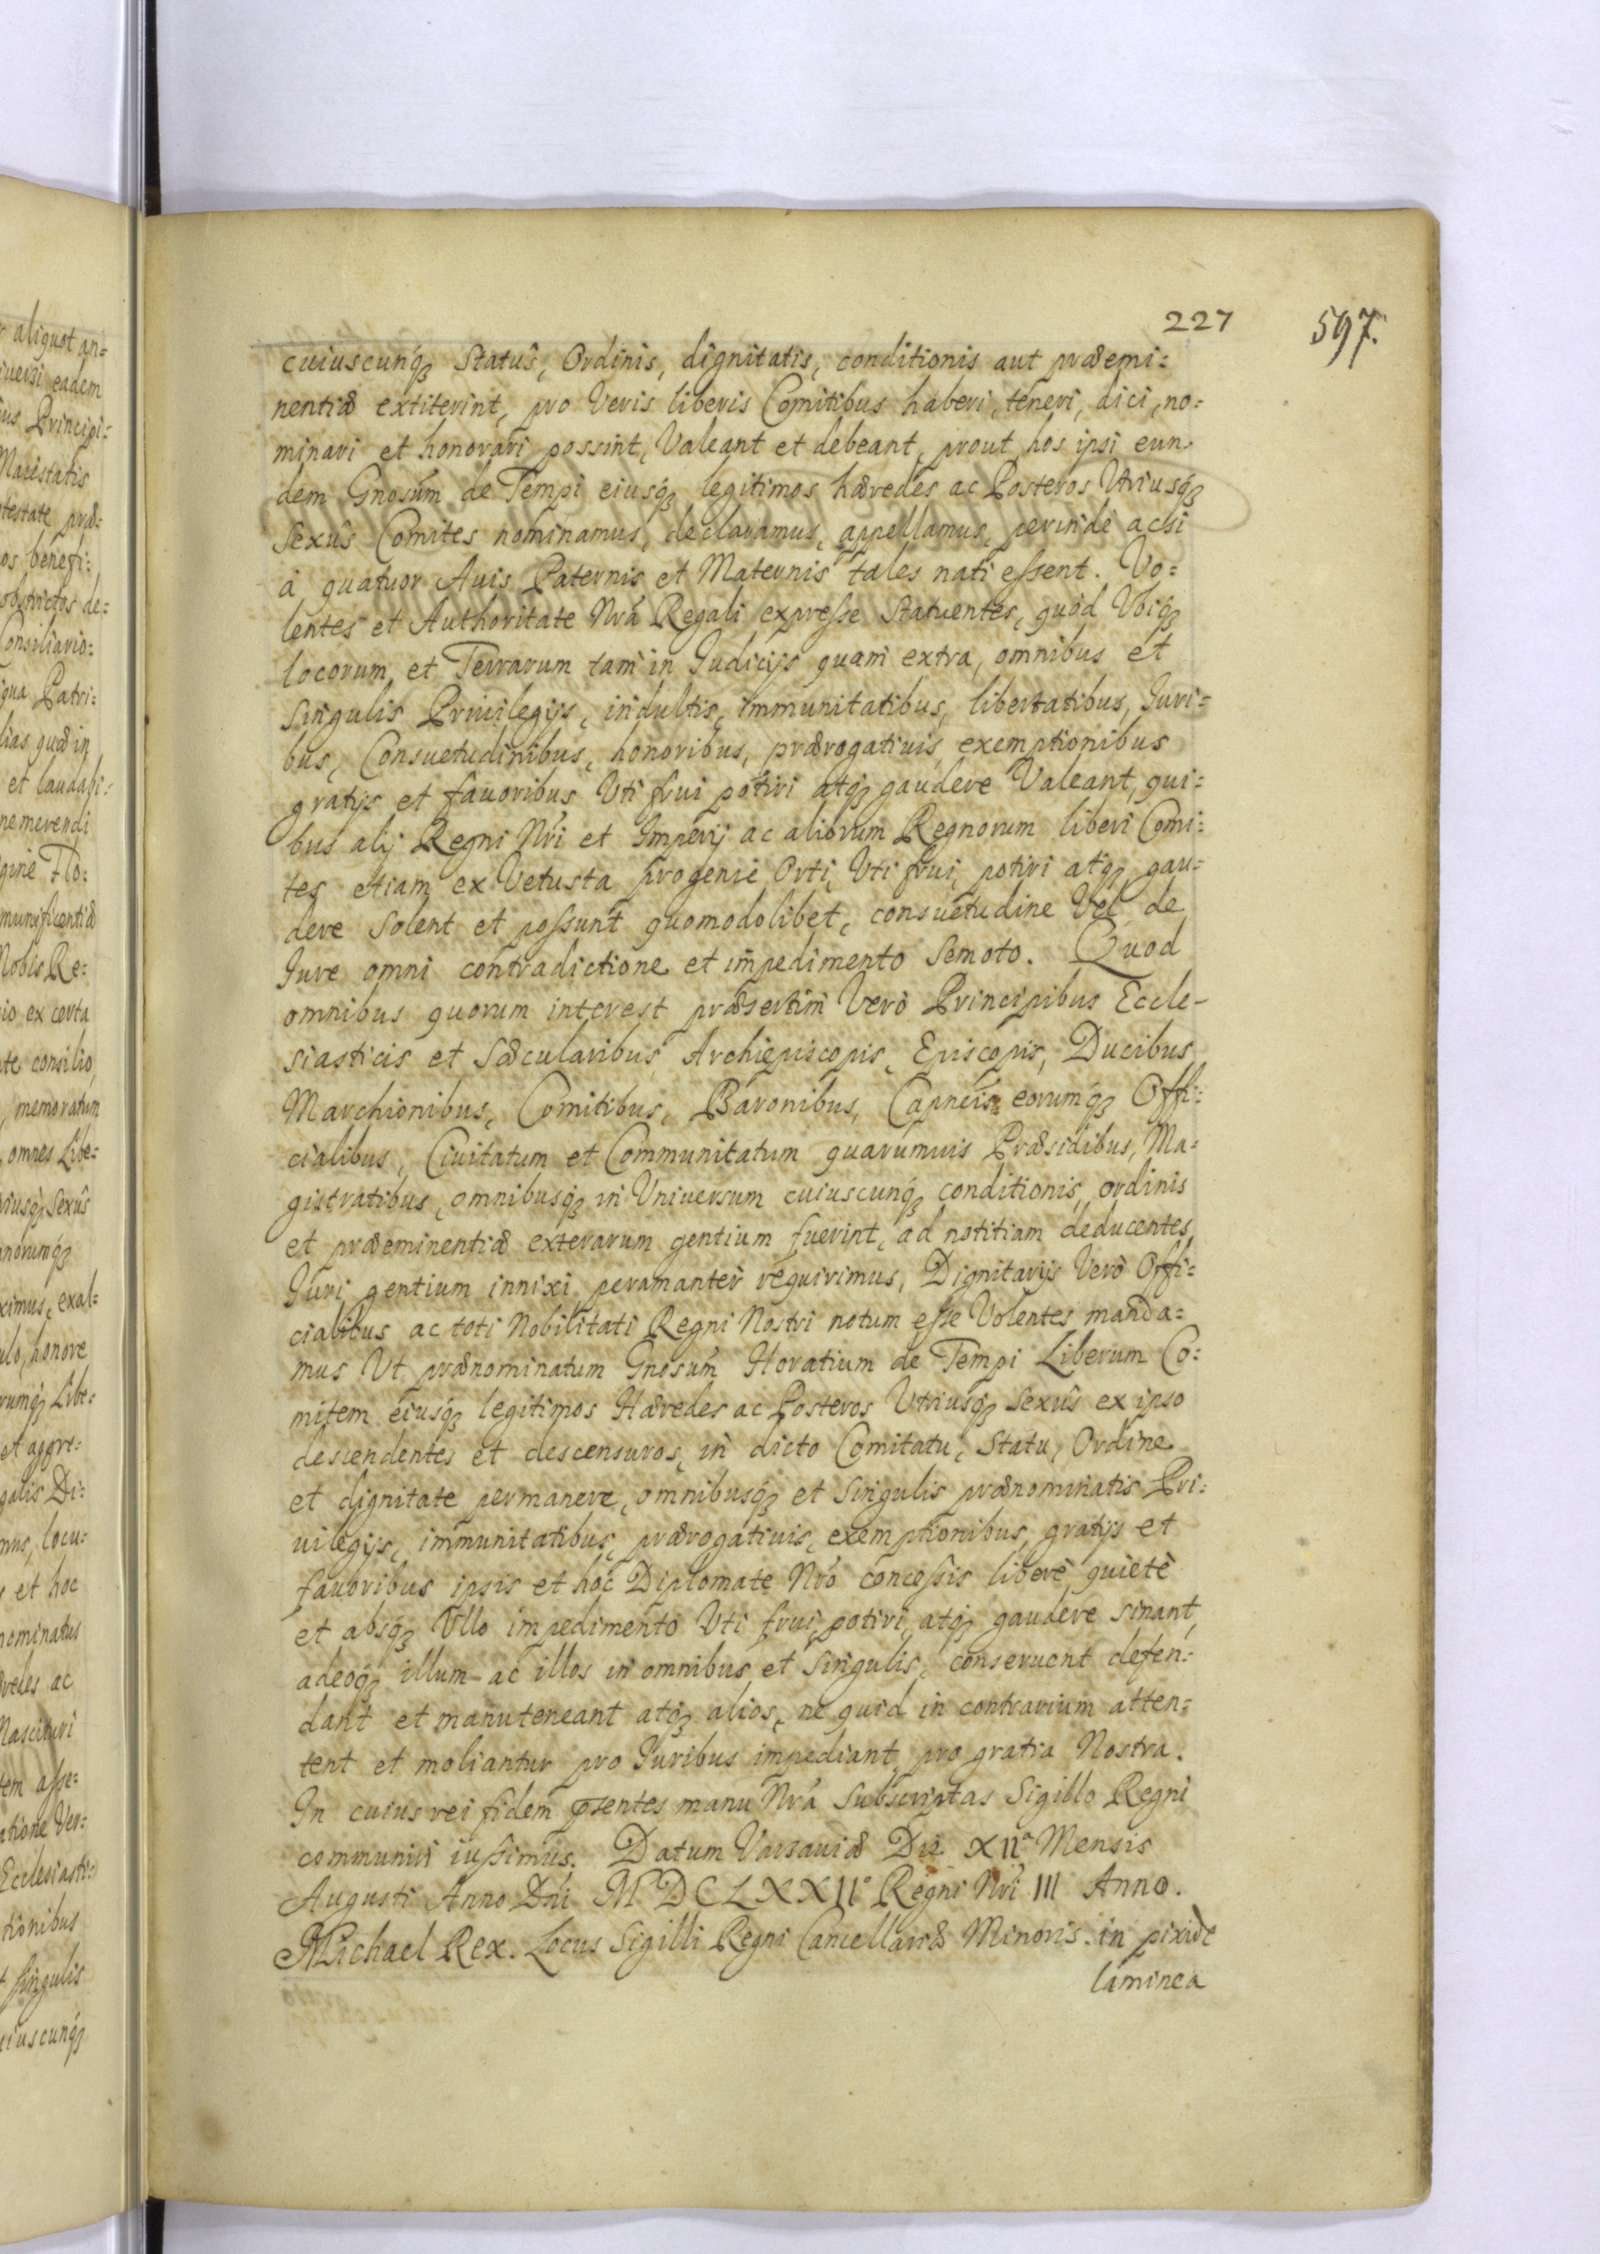 227
597.
cuiuscunq̃ Statûs, Ordinis, dignitatis, conditionis aut præemi:
nentiæ extiterint, pro Veris liberis Comitibus haberi, teneri, dici, no:
minari et honorari possint, Valeant et debeant, prout hos ipsi eun
dem Gnosum de Tempi eiusq̃ legitimos hæredes ac Posteros Utriusq̃
Sexûs Comites nominamus, declaramus, appellamus, perinde acsi
à quatuor Auis Paternis et Maternis tales nati essent. Vo:
lentes et Authoritate Nrã Regali expresse Statuentes, quòd Vbiq̃
locorum, et Terrarum tam in Iudicijs quam extra, omnibus et
singulis Priuilegijs, indultis, immunitatibus, libertatibus, Iuri:
bus, Consuetudinibus, honoribus, prærogatiuis, exemptionibus
gratijs et fauoribus Vti frui potiri atq̃ gaudere Valeant, qui:
bus alij Regni Nri et Imperij ac aliorum Regnorum liberi Comi:
tes etiam ex Vetusta progenie Orti, Vti frui, potiri atq̃ gau:
dere Solent et possunt quomodolibet, consuetudine Vel de
Iure omni contradictione et impedimento Semoto. Quod
omnibus quorum interest præsertim Verò Principibus Eccle-
siasticis et Sæcularibus Archiepiscopis, Episcopis, Ducibus
Marchionibus, Comitibus, Baronibus, Capneis eorumq̃ Offi:
cialibus, Ciuitatum et Communitatum quarumuis Præsidibus, Ma:
gistratibus, omnibusq̃ in Vniuersum cuiuscunq̃ conditionis, ordinis
et præeminentiæ exterarum gentium fuerint, ad notitiam deducentes
Iuri gentium innixi peramanter requirimus, Dignitarijs Verò Offi:
cialibus ac toti Nobilitati Regni Nostri notum esse Volentes manda:
mus Vt prænominatum Gnosum Horatium de Tempi Liberum Co:
mitem eiusq̃ legitimos Hæredes ac Posteros Vtriusq̃ Sexûs ex ipso
descendentes et descensuros, in dicto Comitatu, Statu, Ordine
et dignitate permanere, omnibusq̃ et Singulis prænominatis Pri:
uilegijs, immunitatibus, prærogatiuis, exemptionibus, gratijs et
fauoribus ipsis et hoc Diplomate Nrõ concessis liberè quietè
et absq̃ Vllo impedimento Vti frui, potiri, atq̃ gaudere sinant,
adeoq̃ illum ac illos in omnibus et Singulis, conseruent defen:
dant et manuteneant atq̃ alios, ne quid in contrarium atten:
tent et moliantur pro Iuribus impediant pro gratia Nostra.
In cuius rei fidem pñtentes manu Nrã Subscriptas Sigillo Regni
communiri iussimus. Datum Varsauiæ Die XIIª Mensis
Augusti Anno Dni MDCLXXIIº Regni Nri III Anno.
Michael Rex. Locus Sigilli Regni Cancellariæ Minoris. in pixide
laminea